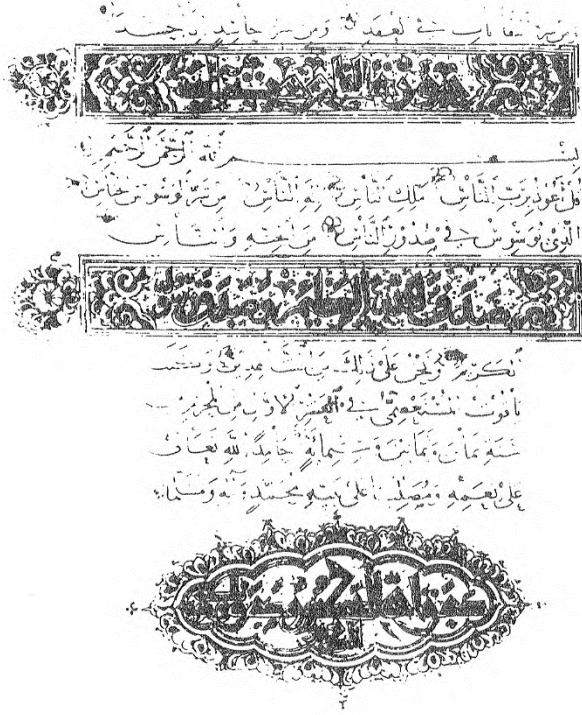 ومن شر النفاثات في العقد ومن شر حاسد اذا حسد
بسم الله الرحمن الرحيم
قل أعوذ برب الناس ملك الناس إله الناس من شر الوسواس الخناس
الذي يوسوس في صدور الناس من الجنة والناس
صدق الله العظيم وصدق رسوله
الكريم ونحن على ذلك من الشاهدين وكتب
ياقوت المستعصمي في العشر الاول من المحرم
سنة ثمان وثمانين وستمائة حامدا لله تعالى
على نعمه ومصليا على نبيه محمد وآله ومسلما